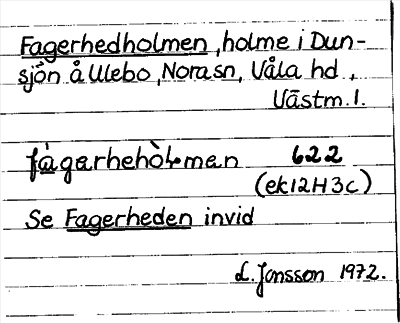 Fagerhedholmen, holme i Dun-
sjön å Ulebo, Nora sn, Våla hd,
Västm. l.
fàgarhehòl̥man 622
(ek 12H 3c)
Se Fagerheden invid
L. Jonsson 1972.